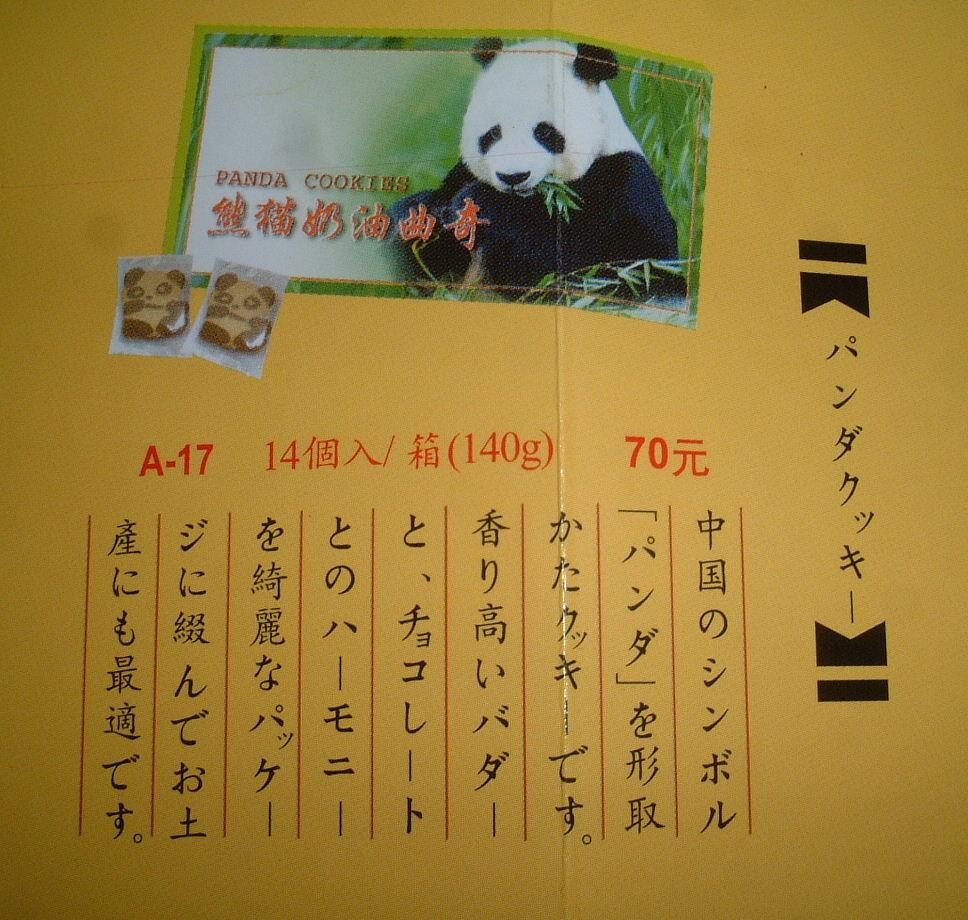 PANDA COOKIES
熊猫奶油曲奇
パンダクッキー
A-17 14個入/箱(140g) 70元
中国のシンボル
「パンダ」を形取
かたクッキーです。
香り高いバダー
と、チョコしート
とのハーモニー
を綺麗なパッケー
ジに綴んでお土
産にも最適です。